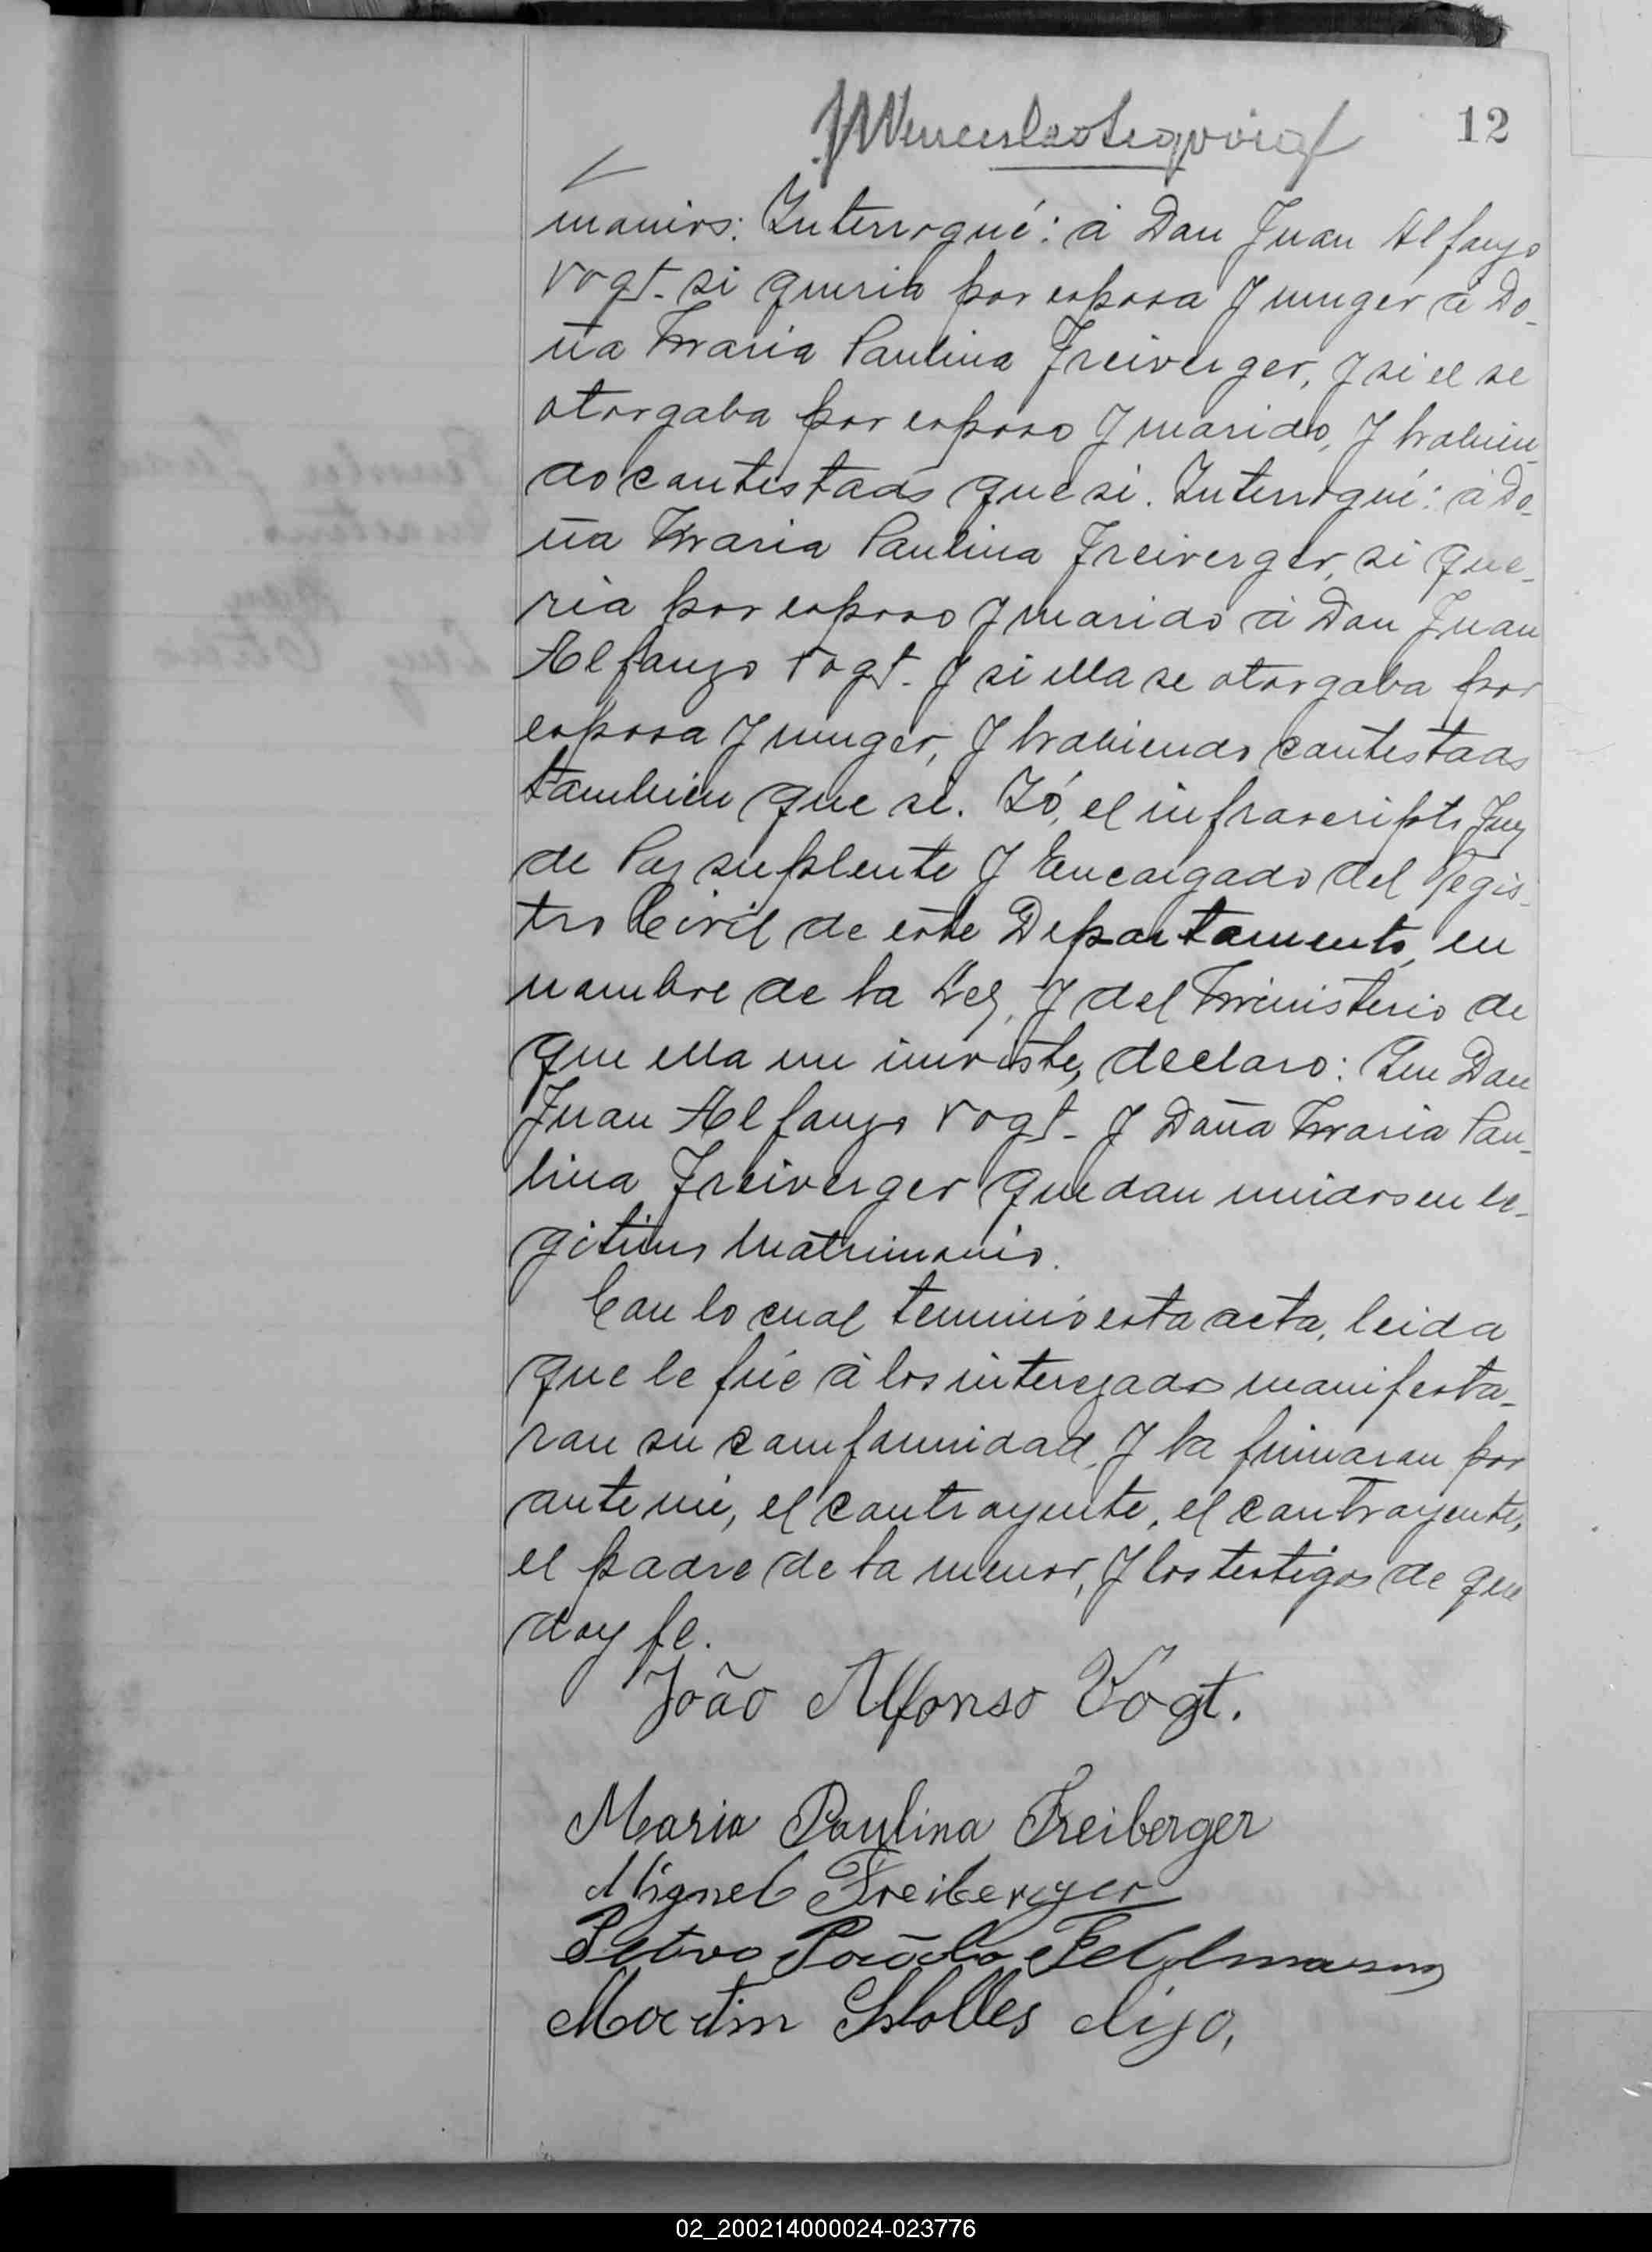 12
manios: Interrogué: á Don Juan Alfonzo
Vogt. si queria por esposa y muger á Do-
ña Maria Paulina Freiverger, y si el se
otorgaba por esposo y marido, y habien-
do contestado que si. Interrogué: á Do-
ña Maria Paulina Freiverger, si que-
ria por esposo y marido á Don Juan
Alfonzo Vogt. y si ella se otorgaba por
esposa y muger, y habiendo contestado
tambien que si. Yó, el infrascripto Juez
de Paz suplente y Encargado del Regis-
tro Civil de este Departamento, en
nombre de la Ley, y del Ministerio de
que ella me inviste, declaro: Que Don
Juan Alfonzo Vogt. y Doña Maria Pau-
lina Freiverger quedan unidos en le-
gitimo matrimonio.
Con lo cual terminó esta acta, leida
que le fué á los interezados manifesta-
ron su comformidad, y la firmaron por
ante mi, el contrayente, el contrayente,
el padre de la menor, y los testigos de que
doy fe.
João Alfonso Vogt.
Maria Paulina Freiberger
Miguel Freiberger
Pedro Feldmann
Martin Stolles digo,
02_200214000024-023776